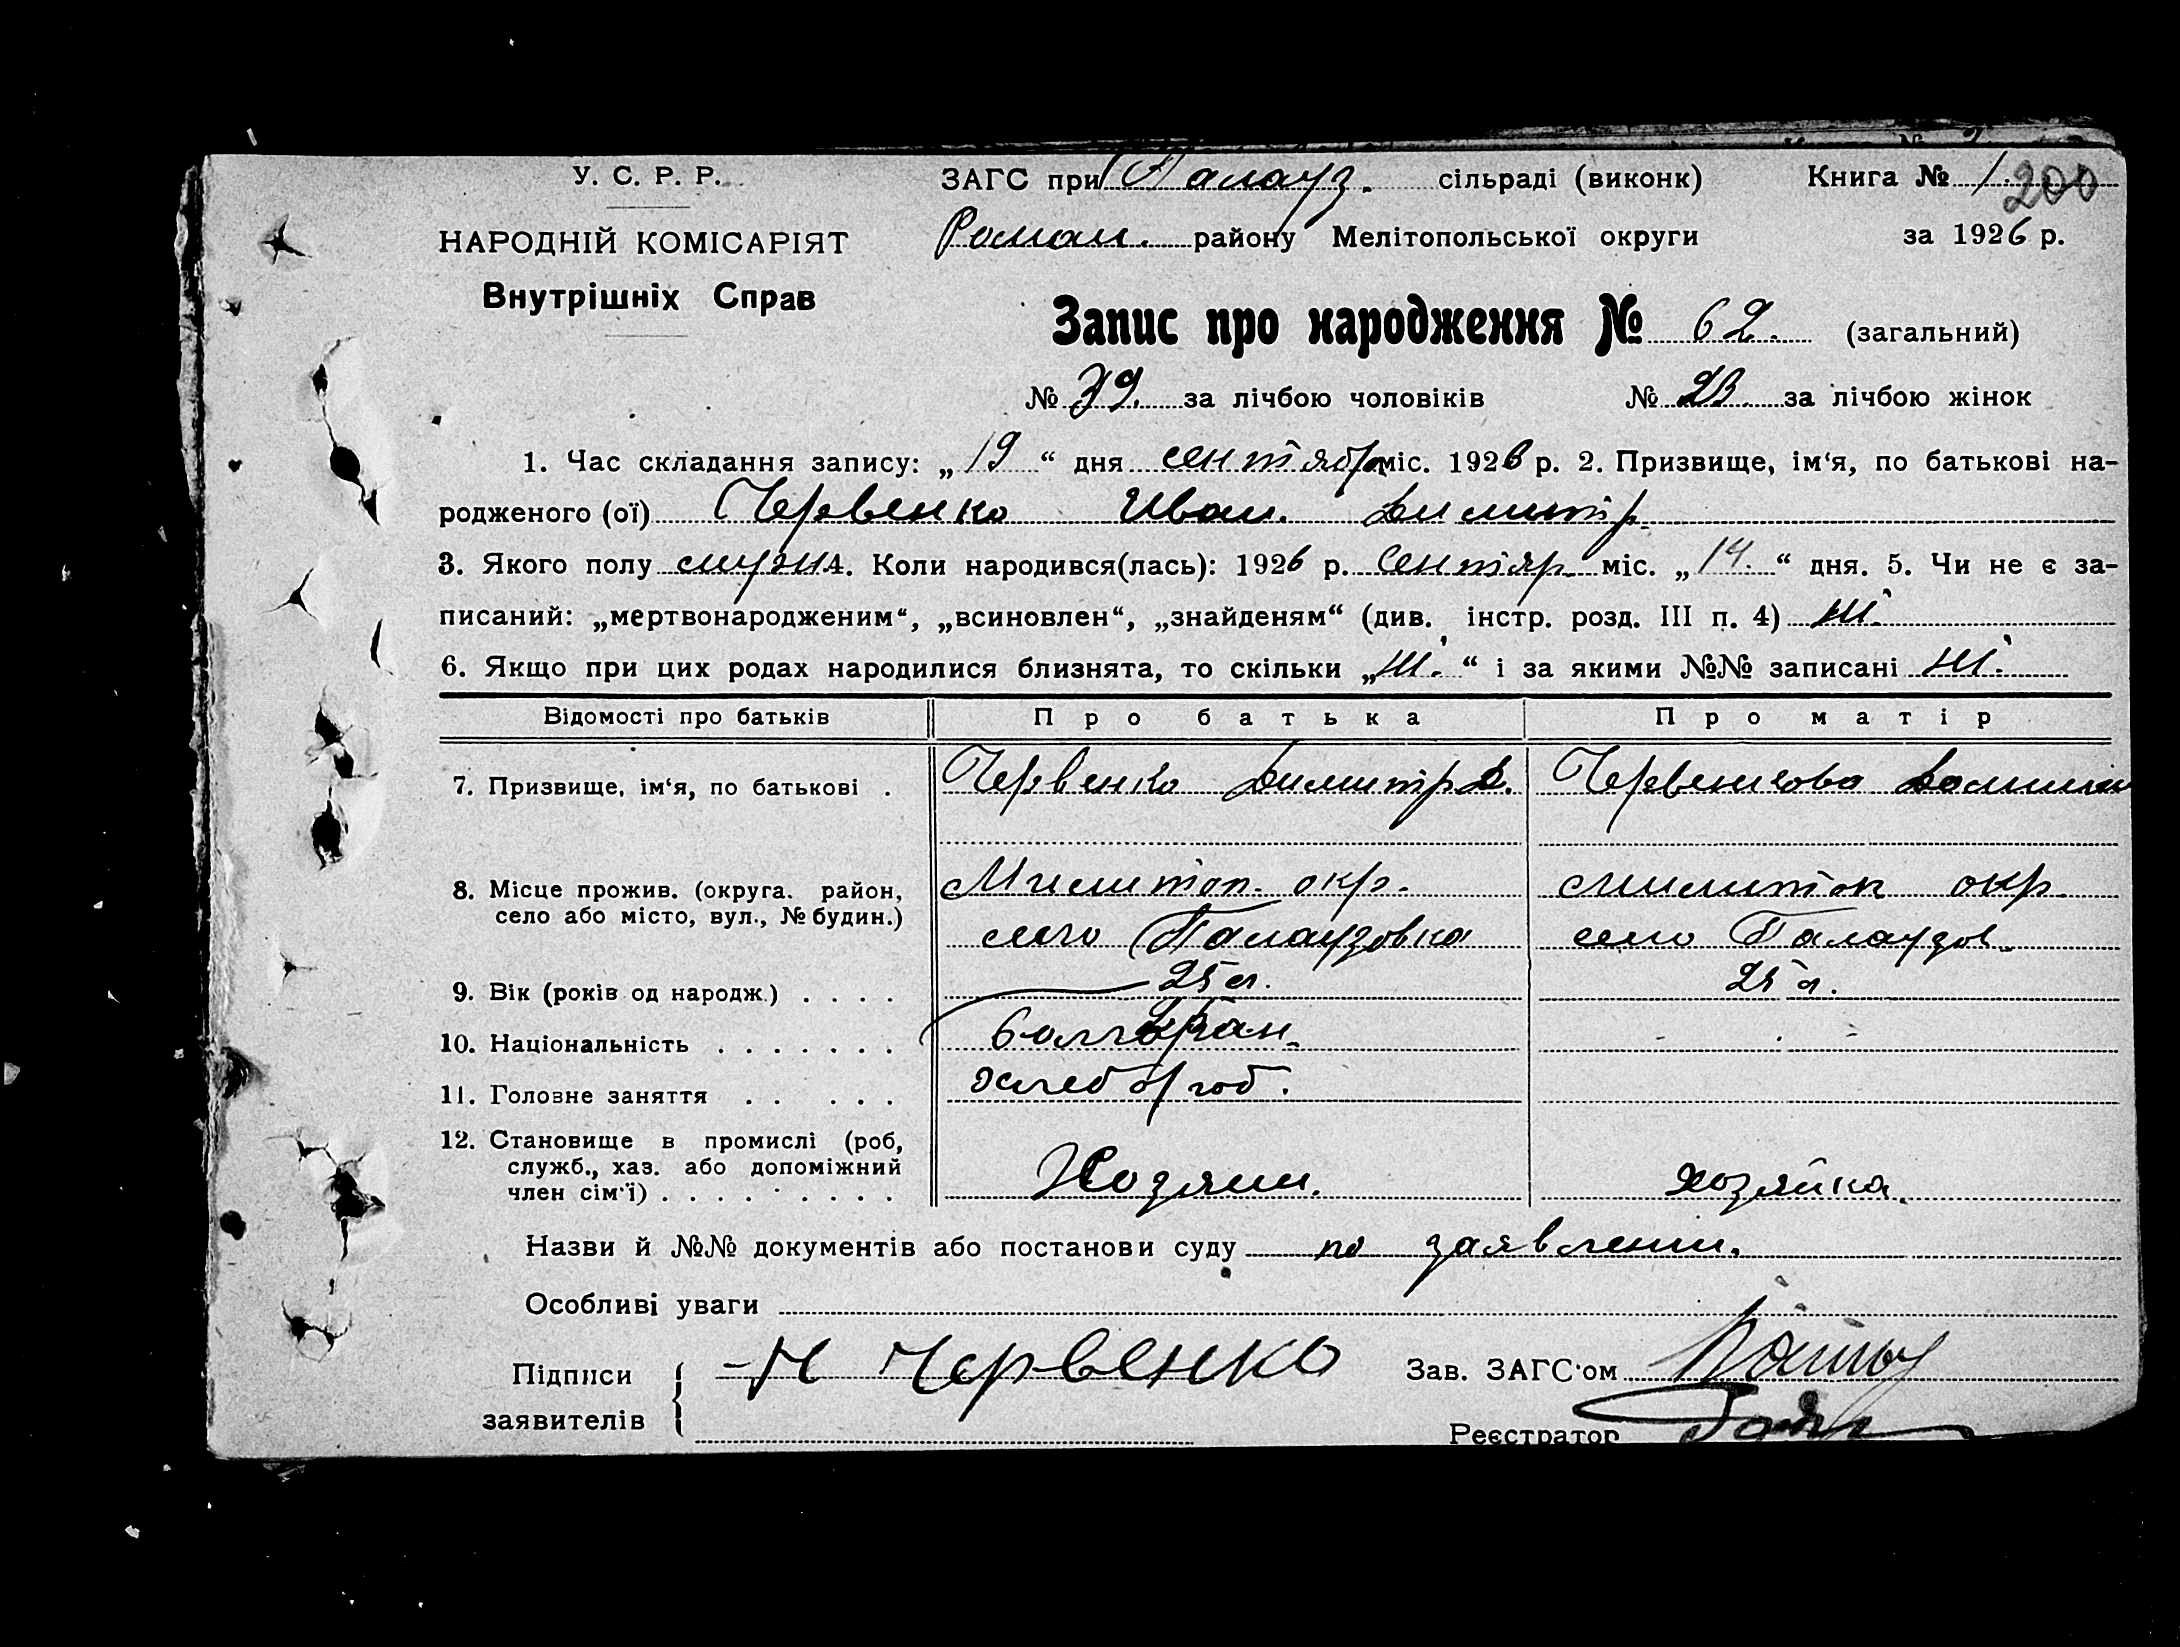 У. С. Р. Р. ЗАГС при Палауз. сільраді (виконк) Книга № 1. 200
НАРОДНІЙ КОМІСАРІЯТ Роман. району Мелітопольської округи за 1926 р.
Внутрішніх Справ
Запис про народження № 62. (загальний)
№ 39. за лічбою чоловіків № 23. за лічбою жінок
1. Час складання запису: „19“ дня сентября міс. 1926 р. 2. Призвище, ім‘я, по батькові на-
родженого (ої) Червенко Иван. Димитр.
3. Якого полу мужч. 4. Коли народився(лась): 1926 р. Сентяр. міс. „14.“ дня. 5. Чи не є за-
писаний: „мертвонародженим“, „всиновлен“, „знайденям“ (див. інстр. розд. III п. 4)
6. Якщо при цих родах народилися близнята, то скільки „ “ і за якими №№ записані
Відомості про батьків Про батька Про матір
7. Призвище, ім‘я, по батькові . Червенко Димитр Д. Червенкова
8. Місце прожив. (округа. район, Милитоп. окр. милитоп окр.
село або місто, вул., № будин.) село Палаузовка село Палаузов.
9. Вік (років од народж.) . . . . 25 л. 25 л.
10. Національність . . . . . . . болгаран.
11. Головне заняття . . . . . хлебороб.
12. Становище в промислі (роб,
служб., хаз. або допоміжний
член сім‘ї) . . . . . . . . . Хозяин. хозяйка.
Назви й №№ документів або постанови суду по заявлении.
Особливі уваги
Підписи Червенко Зав. ЗАГС‘ом
заявителів Реєстратор